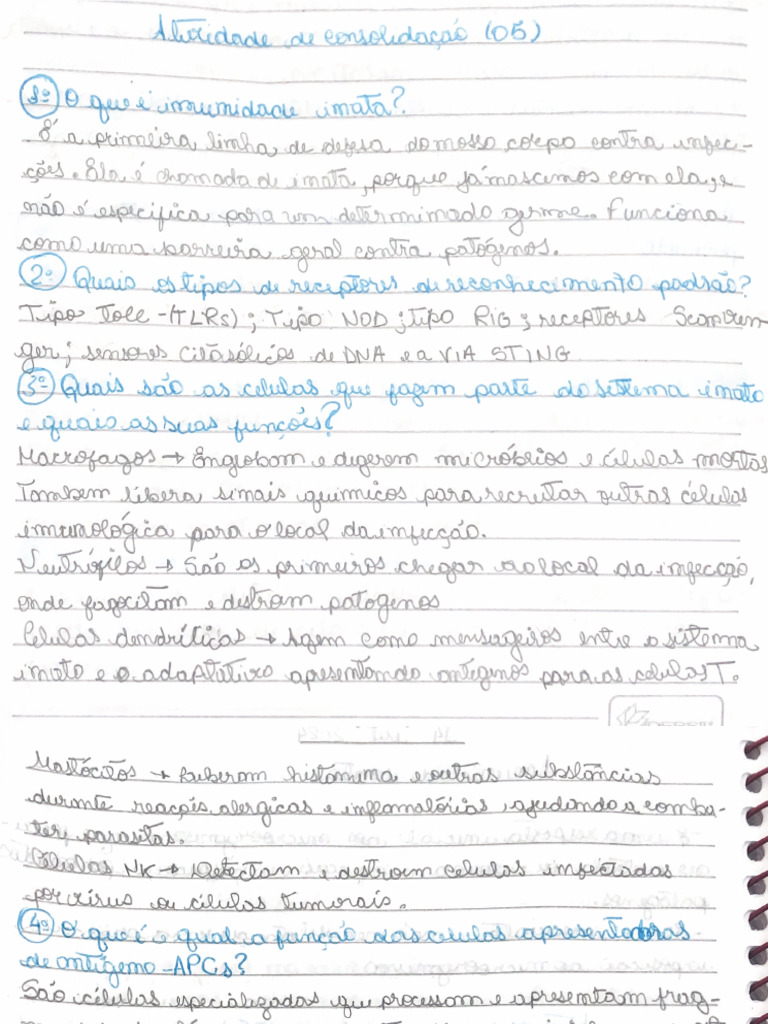 Atividade de consolidação (05)
1º O que é imunidade inata?
É a primeira linha de defesa do nosso corpo contra infec-
ções. Ela é chamada de inata, porque já nascemos com ela, e
não é especifica para um determinado germe. Funciona
como uma barreira geral contra patógenos.
2º Quais os tipos de receptores de reconhecimento padrão?
Tipo Toll-(TLRs); Tipo NOD; tipo RIG; receptores Scaven
ger; sensores citosólicos de DNA e a VIA STING
3º Quais são as celulas que fazem parte do sistema inato
e quais as suas funções?
Macrofagos → Englobam e digerem micróbios e células mortas
Tambem libera sinais quimicos para recrutar outras células
imunológica para o local da infecção.
Neutrófilos → São os primeiros chegar ao local da infecção,
onde fagocitam e destroem patogenos
Celulas dendríticas → Agem como mensageiros entre o sistema
inato e o adaptativo apresentando antigenos para as celulas T.
Mastócitos → liberam histamina e outras substâncias
durante reações alergicas e inflamatórias, ajudando a comba-
ter parasitas.
Células NK → Detectam e destroem celulas infectadas
por virus ou celulas tumorais.
4º O que é e qual a função das celulas apresentadoras
de antigeno-APCs?
São células especializadas que processam e apresentam frag-